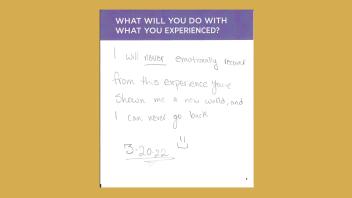 WHAT WILL YOU DO WITH
WHAT YOU EXPERIENCED?
I will never emotionally recover
from this experience you've
shown me a new world, and
I can never go back
3.20.22